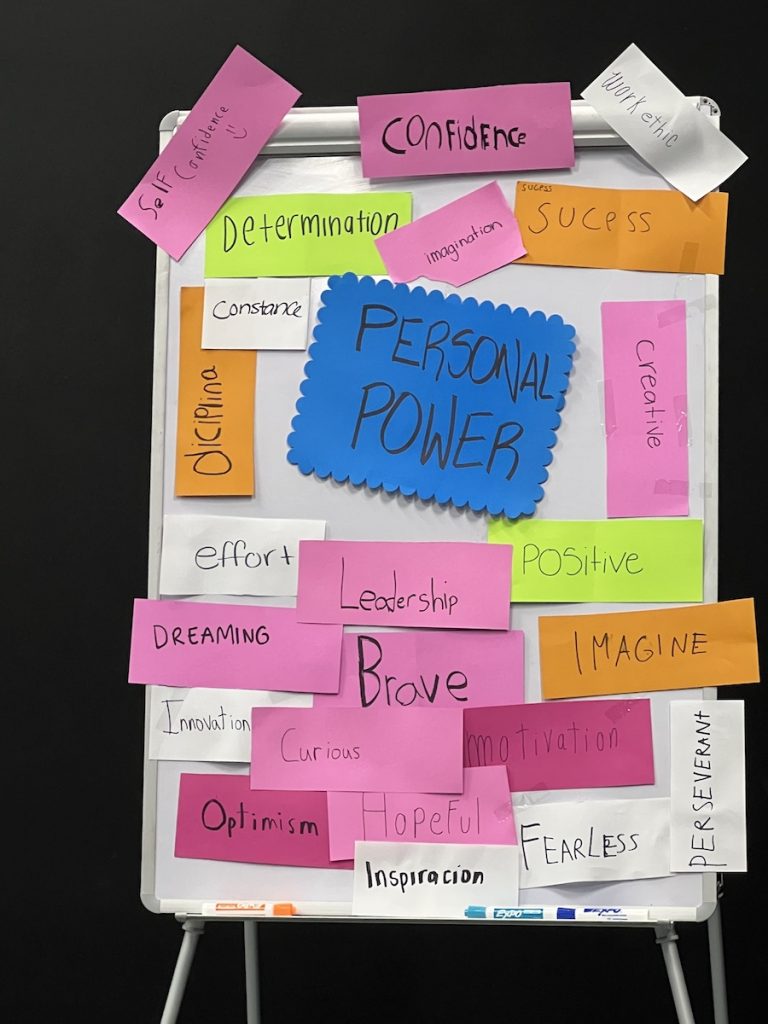 Self Confidence
CONFIDENCE
work ethic
Determination
imagination
sucess
SUCESS
Constance
PERSONAL
POWER
diciplina
creative
effort
Leadership
POSitive
DREAMING
IMAGINE
Brave
Innovation
Curious
motivation
PERSEVERANT
Optimism
HOPEFUL
FEARLESS
Inspiración
EXPO
EXPO